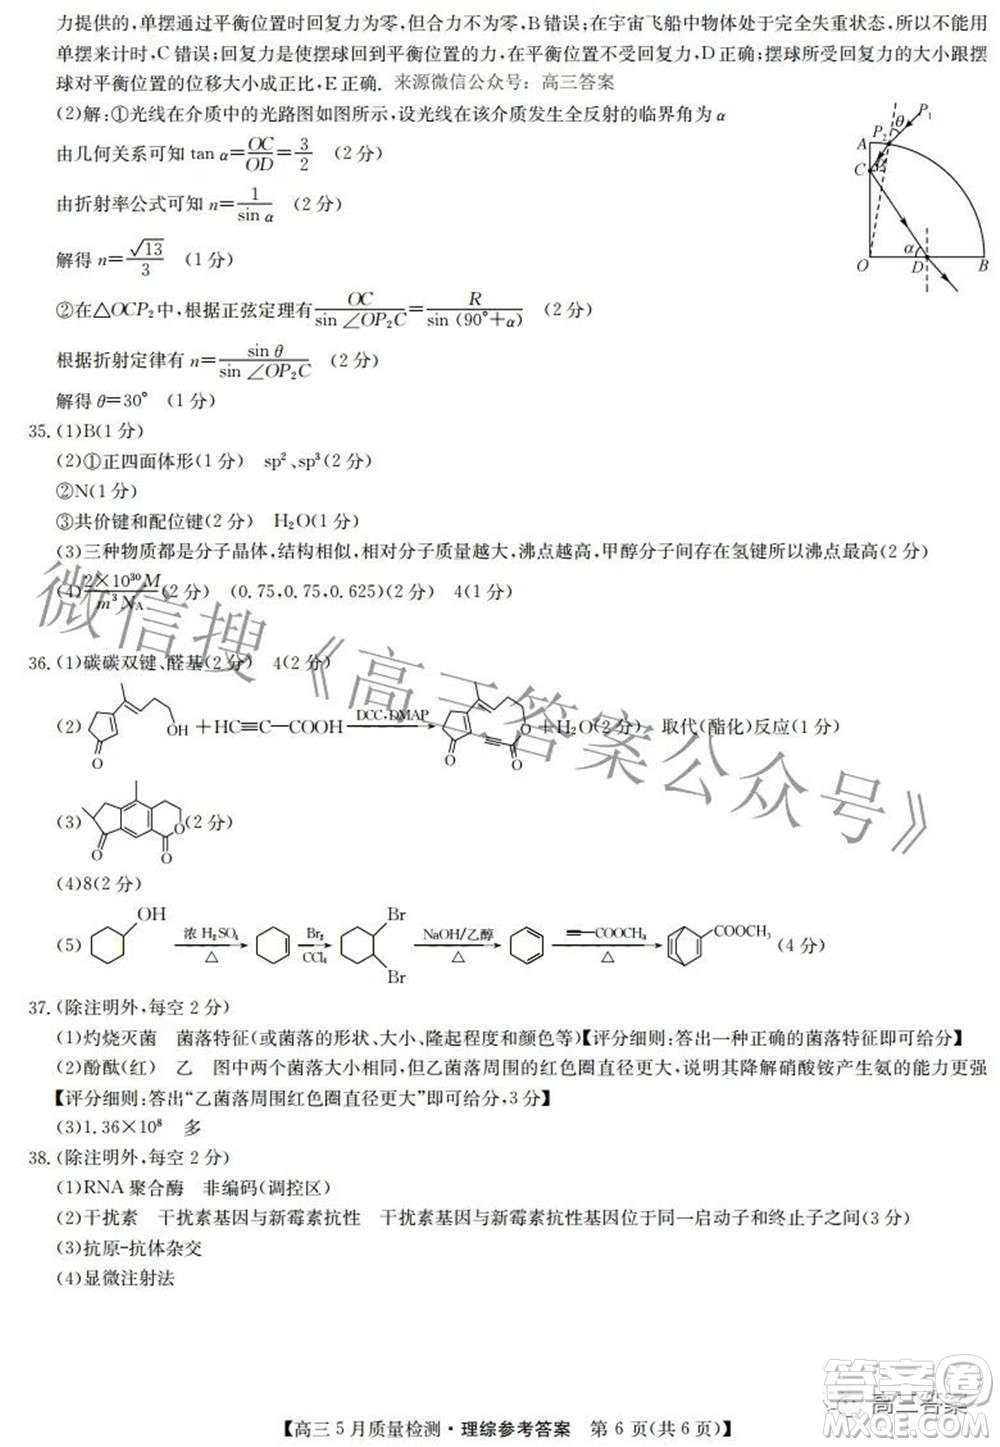 力提供的,单摆通过平衡位置时回复力为零,但合力不为零,B错误;在宇宙飞船中物体处于完全失重状态,所以不能用
单摆来计时,C错误;回复力是使摆球回到平衡位置的力,在平衡位置不受回复力,D正确;摆球所受的回复力的大小跟摆
球对平衡位置的位移大小成正比,E正确. 来源微信公众号:高三答案
(2)解:①光线在介质中的光路图如图所示,设光线在该介质发生全反射的临界角为α
由几何关系可知 tan α=OC/OD=3/2 (2分)
由折射率公式可知 n=1/sin α (2分)
解得 n=√13/3 (1分)
②在△OCP₂中,根据正弦定理有 OC/sin ∠OP₂C=R/sin (90°+α) (2分)
根据折射定律有 n=sin θ/sin ∠OP₂C (2分)
解得 θ=30° (1分)
P₁
θ
P₂
A
C
α
O
D
B
35.(1)B(1分)
(2)①正四面体形(1分) sp²、sp³(2分)
②N(1分)
③共价键和配位键(2分) H₂O(1分)
(3)三种物质都是分子晶体,结构相似,相对分子质量越大,沸点越高,甲醇分子间存在氢键所以沸点最高(2分)
(4)2×10³⁰M/m³NA(2分) (0.75,0.75,0.625)(2分) 4(1分)
36.(1)碳碳双键、醛基(2分) 4(2分)
(2) OH +HC≡C—COOH DCC·DMAP O O O +H₂O(2分) 取代(酯化)反应(2分)
O
(3) O O O (2分)
(4)8(2分)
(5) OH 浓H₂SO₄ △ Br₂ CCl₄ Br Br NaOH/乙醇 △ ≡—COOCH₃ △ COOCH₃ (4分)
37.(除注明外,每空2分)
(1)灼烧灭菌 菌落特征(或菌落的形状、大小、隆起程度和颜色等)【评分细则:答出一种正确的菌落特征即可给分】
(2)酚酞(红) 乙 图中两个菌落大小相同,但乙菌落周围的红色圈直径更大,说明其降解硝酸铵产生氨的能力更强
【评分细则:答出“乙菌落周围红色圈直径更大”即可给分,3分】
(3)1.36×10⁸ 多
38.(除注明外,每空2分)
(1)RNA聚合酶 非编码(调控区)
(2)干扰素 干扰素基因与新霉素抗性 干扰素基因与新霉素抗性基因位于同一启动子和终止子之间(3分)
(3)抗原-抗体杂交
(4)显微注射法
微信搜《高三答案公众号》
答案圈
高三答案
【高三5月质量检测·理综参考答案 第6页(共6页)】